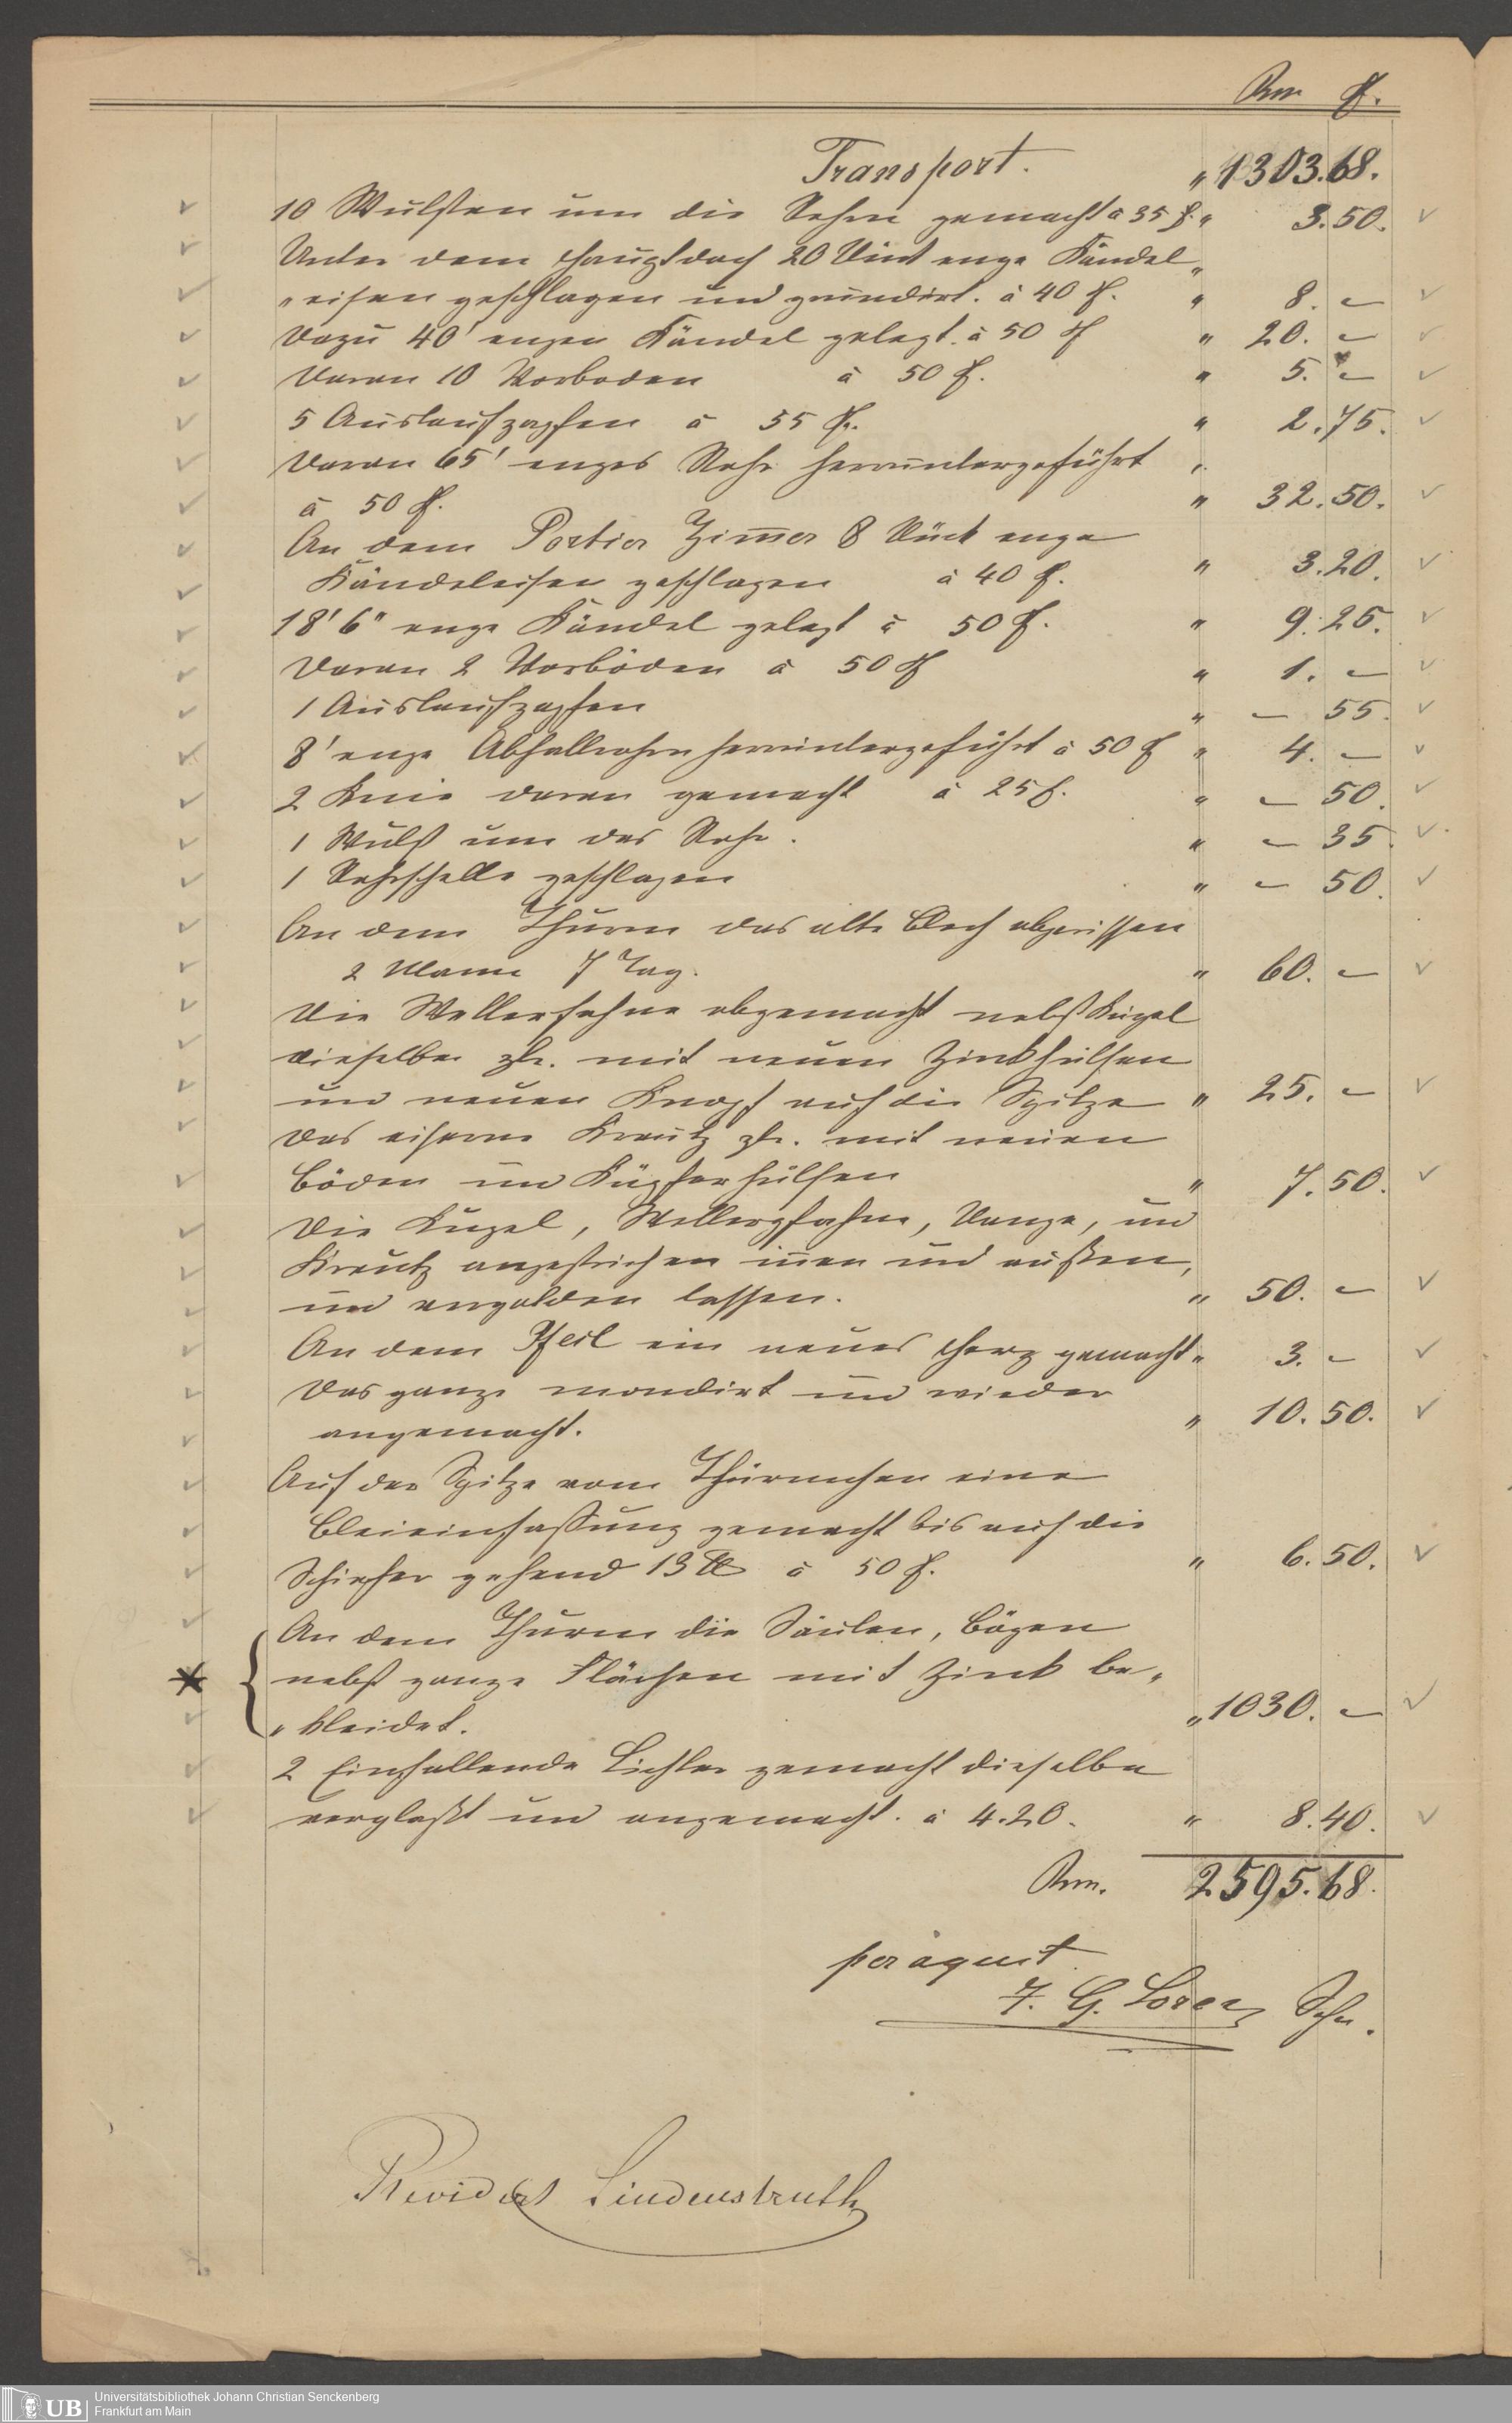 Rm ₰.
Transport. " 1303.68.
10 Wulsten um die Rohre gemacht à 35 ₰. " 3.50.
Unter dem Hauptdach 20 Stück enge Kändel„
„eisen geschlagen und grundirt. à 40 ₰. " 8. –
Dazu 40' engen Kändel gelegt. à 50 ₰ " 20. –
Daran 10 Vorboden à 50 ₰. " 5. –
5 Auslaufzapfen à 55 ₰. " 2.75.
Daran 65' enges Rohr herruntergeführt "
à 50 ₰. " 32.50.
An dem Portier Zim̅er 8 Stück enge
Kändeleisen geschlagen à 40 ₰. " 3.20.
18' 6" enge Kändel gelegt à 50 ₰. " 9.25.
Daran 2 Vorböden à 50 ₰ " 1. –
1 Auslaufzapfen " – 55.
8' enge Abfallrohre herruntergeführt à 50 ₰ " 4. –
2 Knie daran gemacht à 25 ₰. " – 50.
1 Wulst um das Rohr. " – 35.
1 Rohrschelle geschlagen " – 50.
An dem Thurm das alte Blech abgerissen
2 Mann 7 Tag. " 60. –
Die Wetterfahne abgemacht nebst Kugel
dieselbe mit neuen Zinkhülsen
und neuen Knopf auf die Spitze " 25. –
Das eiserne Kreutz mit neuen
Böden und Kupferhülsen " 7.50.
Die Kugel, Stange, und
Kreutz angestrichen in̅en und außen,
und vergolden lassen. " 50. –
An dem Pfeil ein neues Herz gemacht " 3. –
Das ganze mondirt und wieder
angemacht. " 10.50.
Auf der Spitze vom Thürmchen eine
Bleieinfassung gemacht bis auf die
Schiefer gehend 13 ℔ à 50 ₰. " 6.50.
An dem Thurm die Säulen, Bögen
nebst ganze Flächen mit Zink be„
„kleidet. " 1030. –
2 Einfallende Lichter gemacht dieselbe
verglaßt und angemacht. à 4.20. " 8.40.
Rm. 2595.68.
per aquit
J. G. Lorey Sohn.
Revidirt Lindenstruth
Universitätsbibliothek Johann Christian Senckenberg
Frankfurt am Main
UB